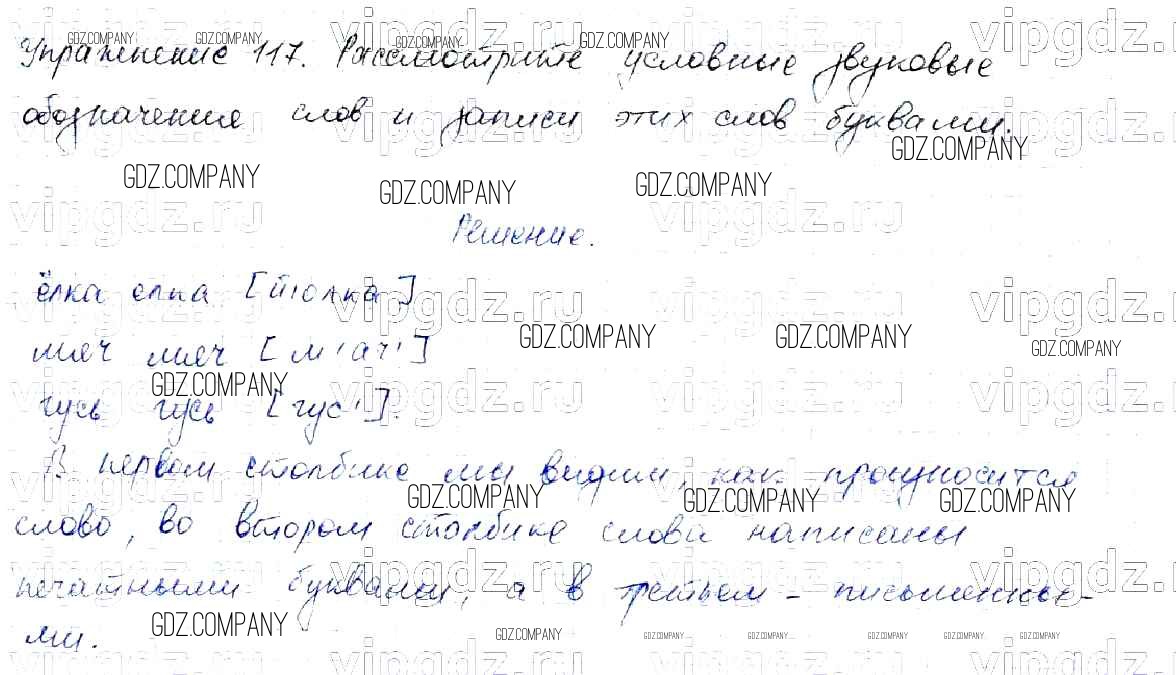 Упражнение 117. Рассмотрите условные звуковые
обозначения слов и записи этих слов буквами.
Решение.
ёлка елка [й'олка]
мяч мяч [м'ач']
гусь гусь [гус'].
В первом столбике мы видим, как произносится
слово, во втором столбике слова написаны
печатными буквами, а в третьем - письменны-
ми.
GDZ.COMPANY
vipgdz.ru